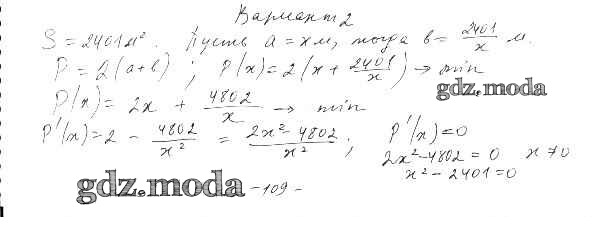 Вариант 2
S = 2401 м². Пусть a = x м, тогда b = 2401/x м.
P = 2(a+b) ; P(x) = 2(x + 2401/x) → min
gdz.moda
P(x) = 2x + 4802/x → min
P'(x) = 2 - 4802/x² = 2x²-4802/x² ; P'(x)=0
2x²-4802 = 0 x ≠ 0
x² - 2401 = 0
gdz.moda
-109-